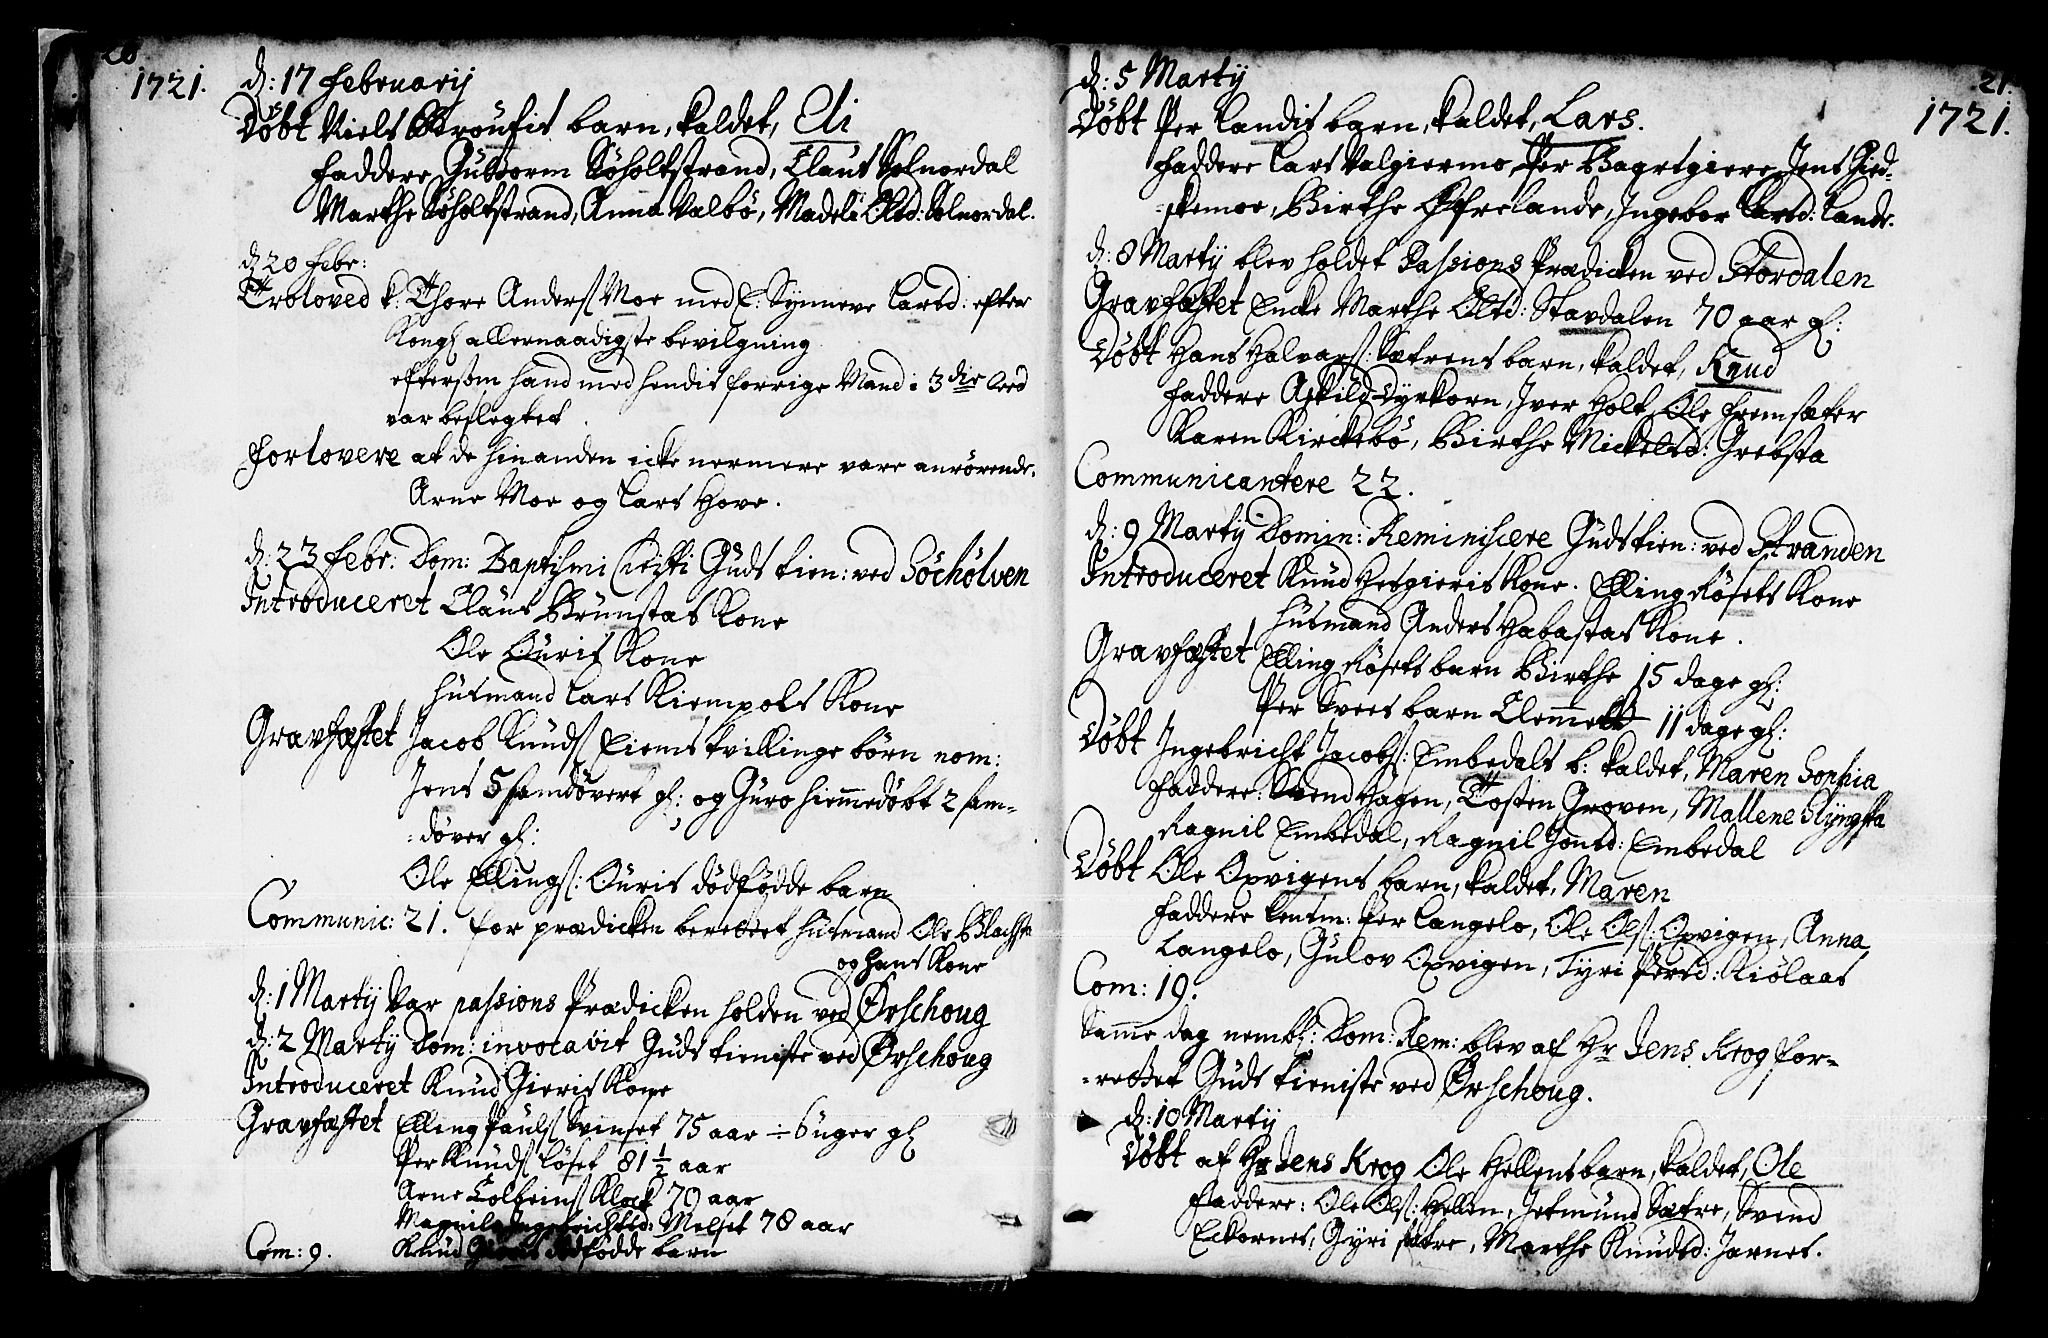 20
1721.
d: 17 Februarij
Døbt Niels Strøufis barn, kaldet, Eli
Faddere Guttorm Søholtstrand, Claus Solnordal
Marthe Søholtstrand, Anna Valbø, Madeli Olsd: Solnordal.
d 20 Febr:
Troloved k. Thore Anders Moe med E. Synneve Larsd: efter
Kongl allernaadigste bevilgning
eftersom hand med hendis forrige Mand i 3die Leed
var beslegtet.
Forlovere at de hinanden icke nermere vare anrørende.
Arne Moe og Lars Hove.
d: 23 Febr: Dom: Baptismi Christi Guds tien: ved Søeholven
Introduceret Claus Brunstas Kone
Ole Ouris Kone
Husmand Lars Kiempols Kone
Gravfæstet Jacob Knuds Eiems tvillinge børn nom:
Jens 5 samdøvert gl: og Guro hiemmedøbt 2 sam-
-døver gl:
Ole Ellings: Ouris dødfødde barn
Communic: 21. for prædicken berettet husmand Ole Blachsta
og hans Kone
d: 1 Martij var passions Prædicken holden ved Ørschoug
d: 2 Martij Dom: invocavit Guds tieniste ved Ørschoug
Introduceret Knud Gieris Kone
Gravfæstet Elling Pauls Svinset 75 aar ÷ 6 uger gl
Per Knuds Løset 81 1/2 aar
Arne Colbeins Klock 70 aar
Magnile Ingebrichtsd: Melset 78 aar
Com: 9. Knud Gieris dødfødde barn
21.
1721.
d: 5 Martij
Døbt Per Landis barn, kaldet, Lars.
Faddere Lars Valgiermo, Per Bagrsgiere, Jens
-skemoe, Birthe Øfrelande, Ingebor Larsd: Lande.
d: 8 Martij blev holdet Passions Prædicken ved Stordalen
Gravfæstet Encke Marthe Olsd: Stavdalen 70 aar gl:
Døbt Hans Halvars: Sætrens barn, kaldet, Knud
Faddere Askild Dyrkorn, Iver Holt, Ole Fremsæter
Karen Kirckebø, Birthe Mickelsd: Grebsta
Communicantere 22.
d: 9 Martij Domin: Reminiscere Guds tien: ved Stranden
Introduceret Knud Hesgieris Kone. Elling Røsets Kone
Husmand Anders Habastas Kone.
Gravfæstet Elling Røsets barn Birthe 15 dage gl:
Per Svees barn Clemmet 11 dage gl:
Døbt Ingebricht Jacobs: Embedals b: kaldet, Maren Sophia
Faddere: Svend Hagen, Tosten Groven, Mallene Slyngsta
Ragnil Embedal, Ragnil Jonsd: Embedal
Døbt Ole Opvigens barn, kaldet, Maren
Faddere Lentm: Per Langelo, Ole Ols: Opvigen, Anna
Langelo, Gulov Opvigen, Tyri Persd: Kiølaas
Com: 19.
Samme dag nembl: Dom: Rem: blev af Hr Jens Krog for-
-rettet Guds tieniste ved Ørschoug.
d: 10 Martij
Døbt af Hr Jens Krog Ole Hellens barn, kaldet, Ole
Faddere: Ole Ols: Hellen, Jetmund Sætre, Svend
Eckornes, Gyri Sætre, Marthe Knudsd: Jarnes.